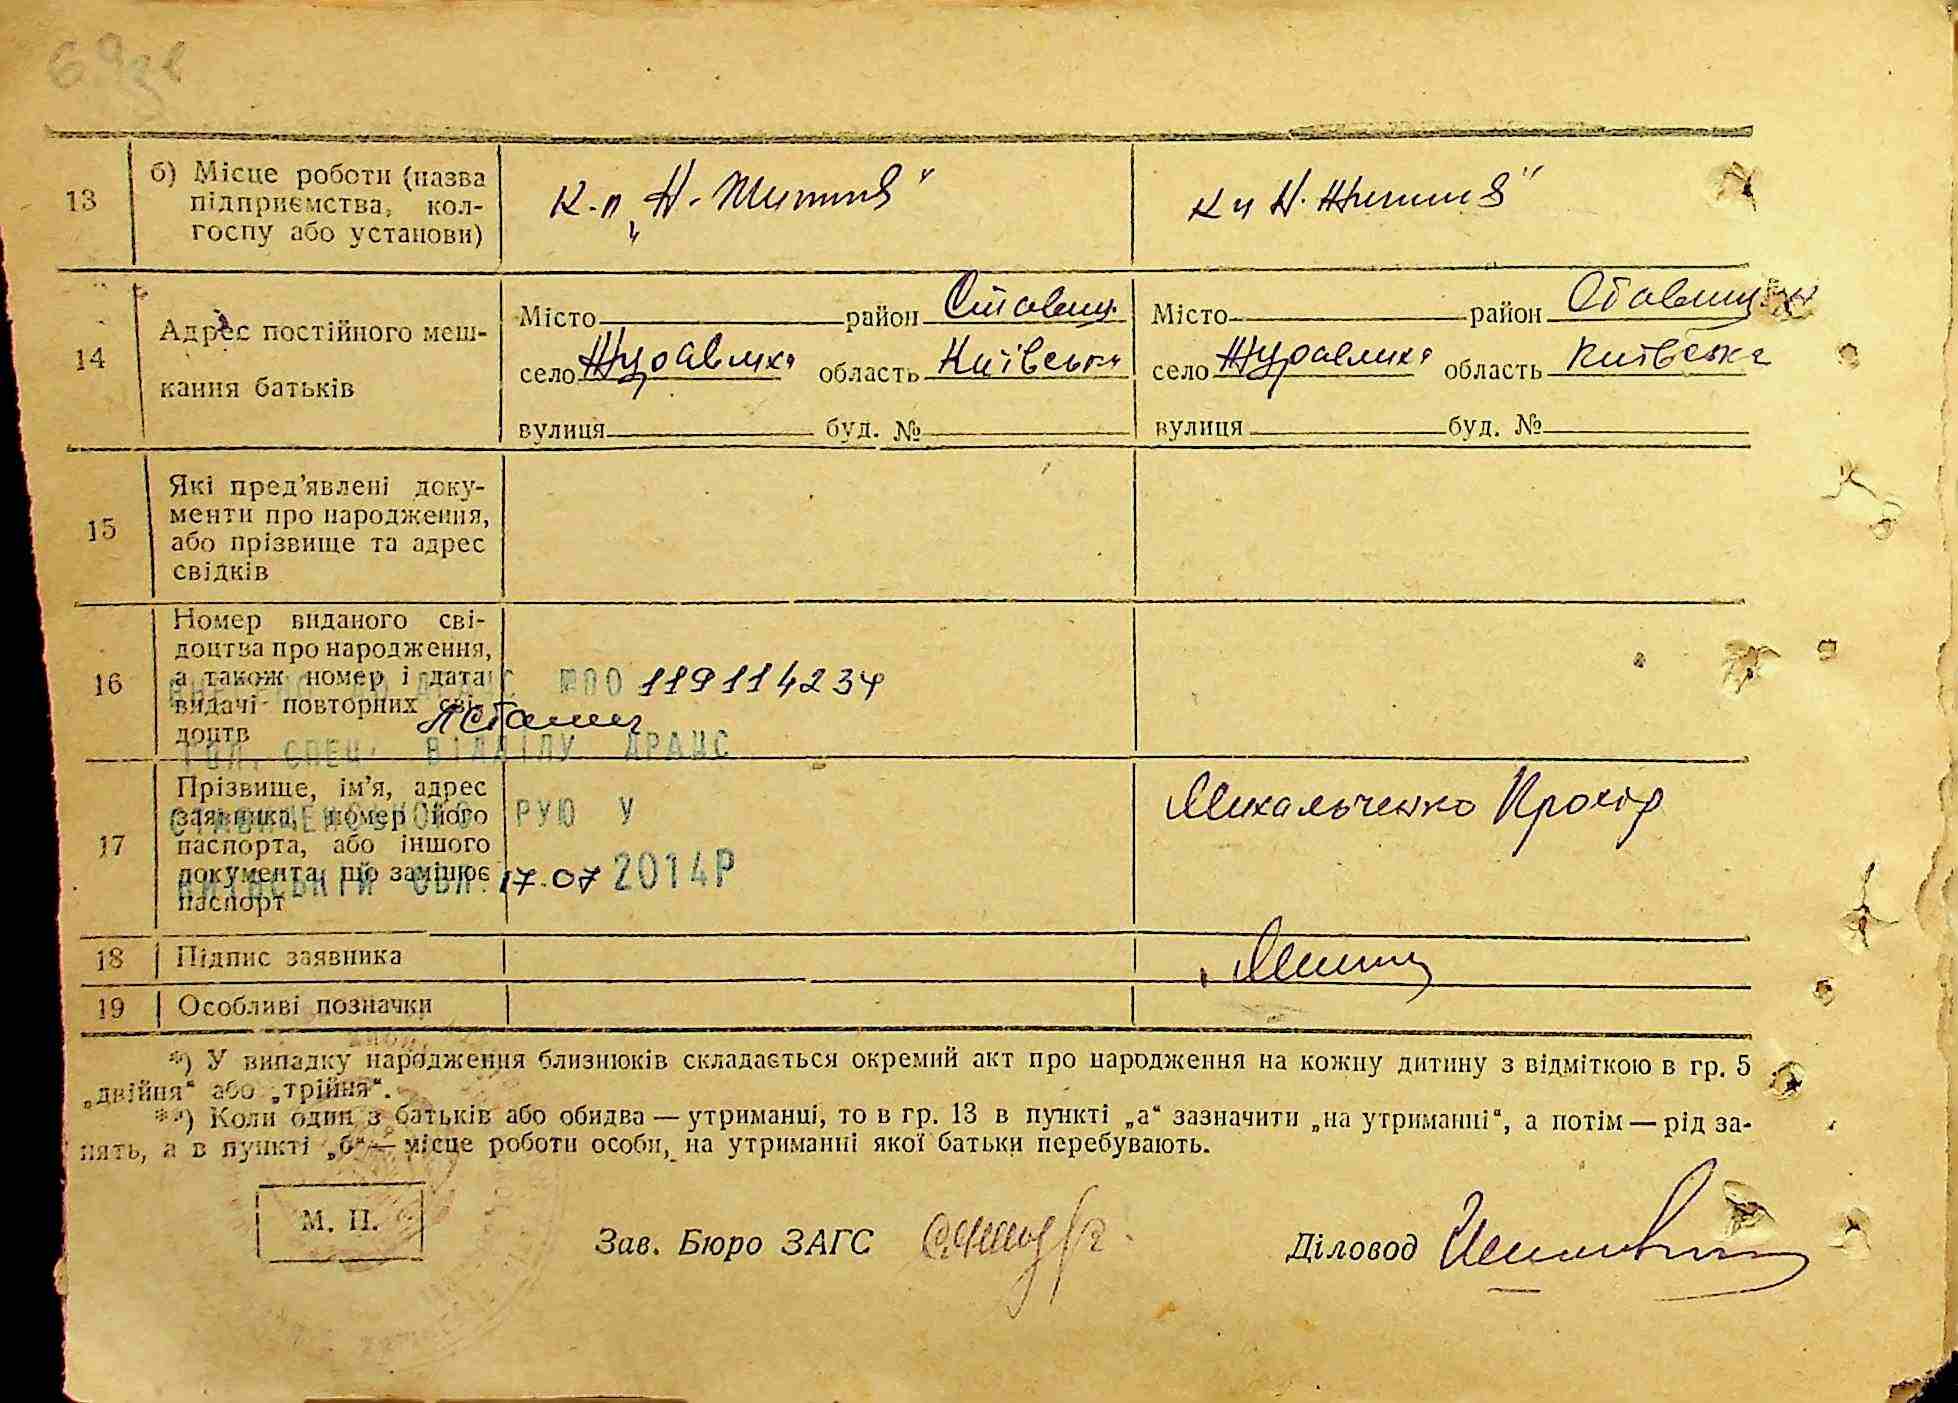 69зв
13
б) Місце роботи (назва
підприємства, кол-
госпу або установи)
К-п „Н-Життя"
К п Н. Життя"
14
Адрес постійного меш-
кання батьків
Місто район Ставищ.
село Журавлиха область Київська
вулиця буд. №
Місто район Ставищ
село Журавлиха область Київська
вулиця буд. №
15
Які пред'явлені доку-
менти про народження,
або прізвище та адрес
свідків
16
Номер виданого сві-
доцтва про народження,
а також номер і дата
видачі повторних сві-
доцтв
ДРАЦС №00 119114234
ГОЛ. СПЕЦ. ВІДДІЛУ ДРАЦС
17
Прізвище, ім'я, адрес
заявника, номер його
паспорта, або іншого
документа, що заміщює
паспорт
СТАВИЩЕНСЬКОГО РУЮ У
КИЇВСЬКІЙ ОБЛ. 17.07 2014Р
Михальченко Прохір
18
Підпис заявника
19
Особливі позначки
*) У випадку народження близнюків складається окремий акт про народження на кожну дитину з відміткою в гр. 5
„двійня“ або „трійня“.
**) Коли один з батьків або обидва — утриманці, то в гр. 13 в пункті „а“ зазначити „на утриманні“, а потім — рід за-
нять, а в пункті „б“ — місце роботи особи, на утриманні якої батьки перебувають.
М. П.
Зав. Бюро ЗАГС
Діловод